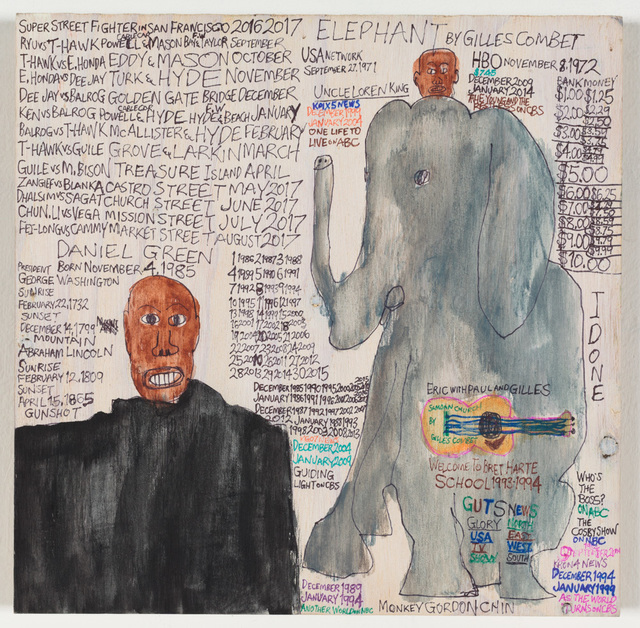 SUPER STREET FIGHTER IN SAN FRANCISCO 2016 2017.
RYU VS T-HAWK POWELL & MASON BAY & TAYLOR SEPTEMBER
CABLECAR
T-HAWK VS E.HONDA EDDY & MASON OCTOBER
E.HONDA VS DEE JAY TURK & HYDE NOVEMBER
DEE JAY VS BALROG GOLDEN GATE BRIDGE DECEMBER
CABLECAR
KEN VS BALROG POWELL & HYDE HYDE & BEACH JANUARY
BALROG VS T-HAWK MCALLISTER & HYDE FEBRUARY
T-HAWK VS GUILE GROVE & LARKIN MARCH
GUILE VS M.BISON TREASURE ISLAND APRIL
ZANGIEF VS BLANKA CASTRO STREET MAY 2017
DHALSIM VS SAGAT CHURCH STREET JUNE 2017
CHUN.LI VS VEGA MISSION STREET JULY 2017
FEI-LONG VS CAMMY MARKET STREET AUGUST 2017
DANIEL GREEN
BORN NOVEMBER 4, 1985
PRESIDENT
GEORGE WASHINGTON
SUNRISE
FEBRUARY 22, 1732
SUNSET
DECEMBER 14, 1799
MOUNTAIN
ABRAHAM LINCOLN
SUNRISE
FEBRUARY 12, 1809
SUNSET
APRIL 15, 1865
GUNSHOT
ELEPHANT BY GILLES COMBET
USA NETWORK
SEPTEMBER 27, 1971
UNCLE LOREN KING
KPIX 5 NEWS
JANUARY 2004
ONE LIFE TO
LIVE ON ABC
HBO NOVEMBER 8, 1972
DECEMBER 2009
JANUARY 2014
THE YOUNG AND THE
ON CBS
BANK MONEY
$1.00 $1.25
$2.00
$3.00
$4.00
$5.00
$6.00 $6.25
$7.00
$8.00
$9.00
$10.00
I DONE
1 1986 2 1987 3 1988
4 1989 5 1990 6 1991
7 1992 8 1993 9 1994
10 1995 11 1996 12 1997
13 1998 14 1999 15 2000
16 2001 17 2002 18 2003
19 2004 20 2005 21 2006
22 2007 23 2008 24 2009
25 2010 26 2011 27 2012
28 2013 29 2014 30 2015
DECEMBER 1985 1990 1995 2000
JANUARY 1986 1991 1996
DECEMBER 1987 1992 1997 2002
2012 JANUARY 1988 1993
1998 2003 2008 2013
DECEMBER 2004
JANUARY 2009
GUIDING
LIGHT ON CBS
DECEMBER 1989
JANUARY 1994
ANOTHER WORLD ON NBC
ERIC WITH PAUL AND GILLES
SAMOAN CHURCH
BY
GILLES COMBET
WELCOME TO BRET HARTE
SCHOOL 1993-1994
GUTS NEWS
GLORY NORTH
USA EAST
T.V. WEST
SHOW SOUTH
MONKEY GORDON CHIN
WHO'S
THE
BOSS?
ON ABC
THE
COSBY SHOW
ON NBC
KRON 4 NEWS
DECEMBER 1994
JANUARY 1999
AS THE WORLD
TURNS ON CBS